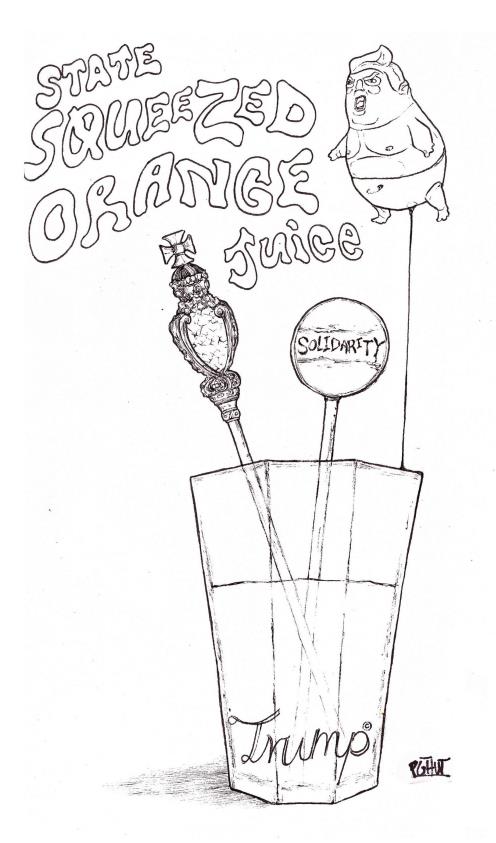 STATE
SQUEEZED
ORANGE
Juice
SOLIDARITY
Trump©